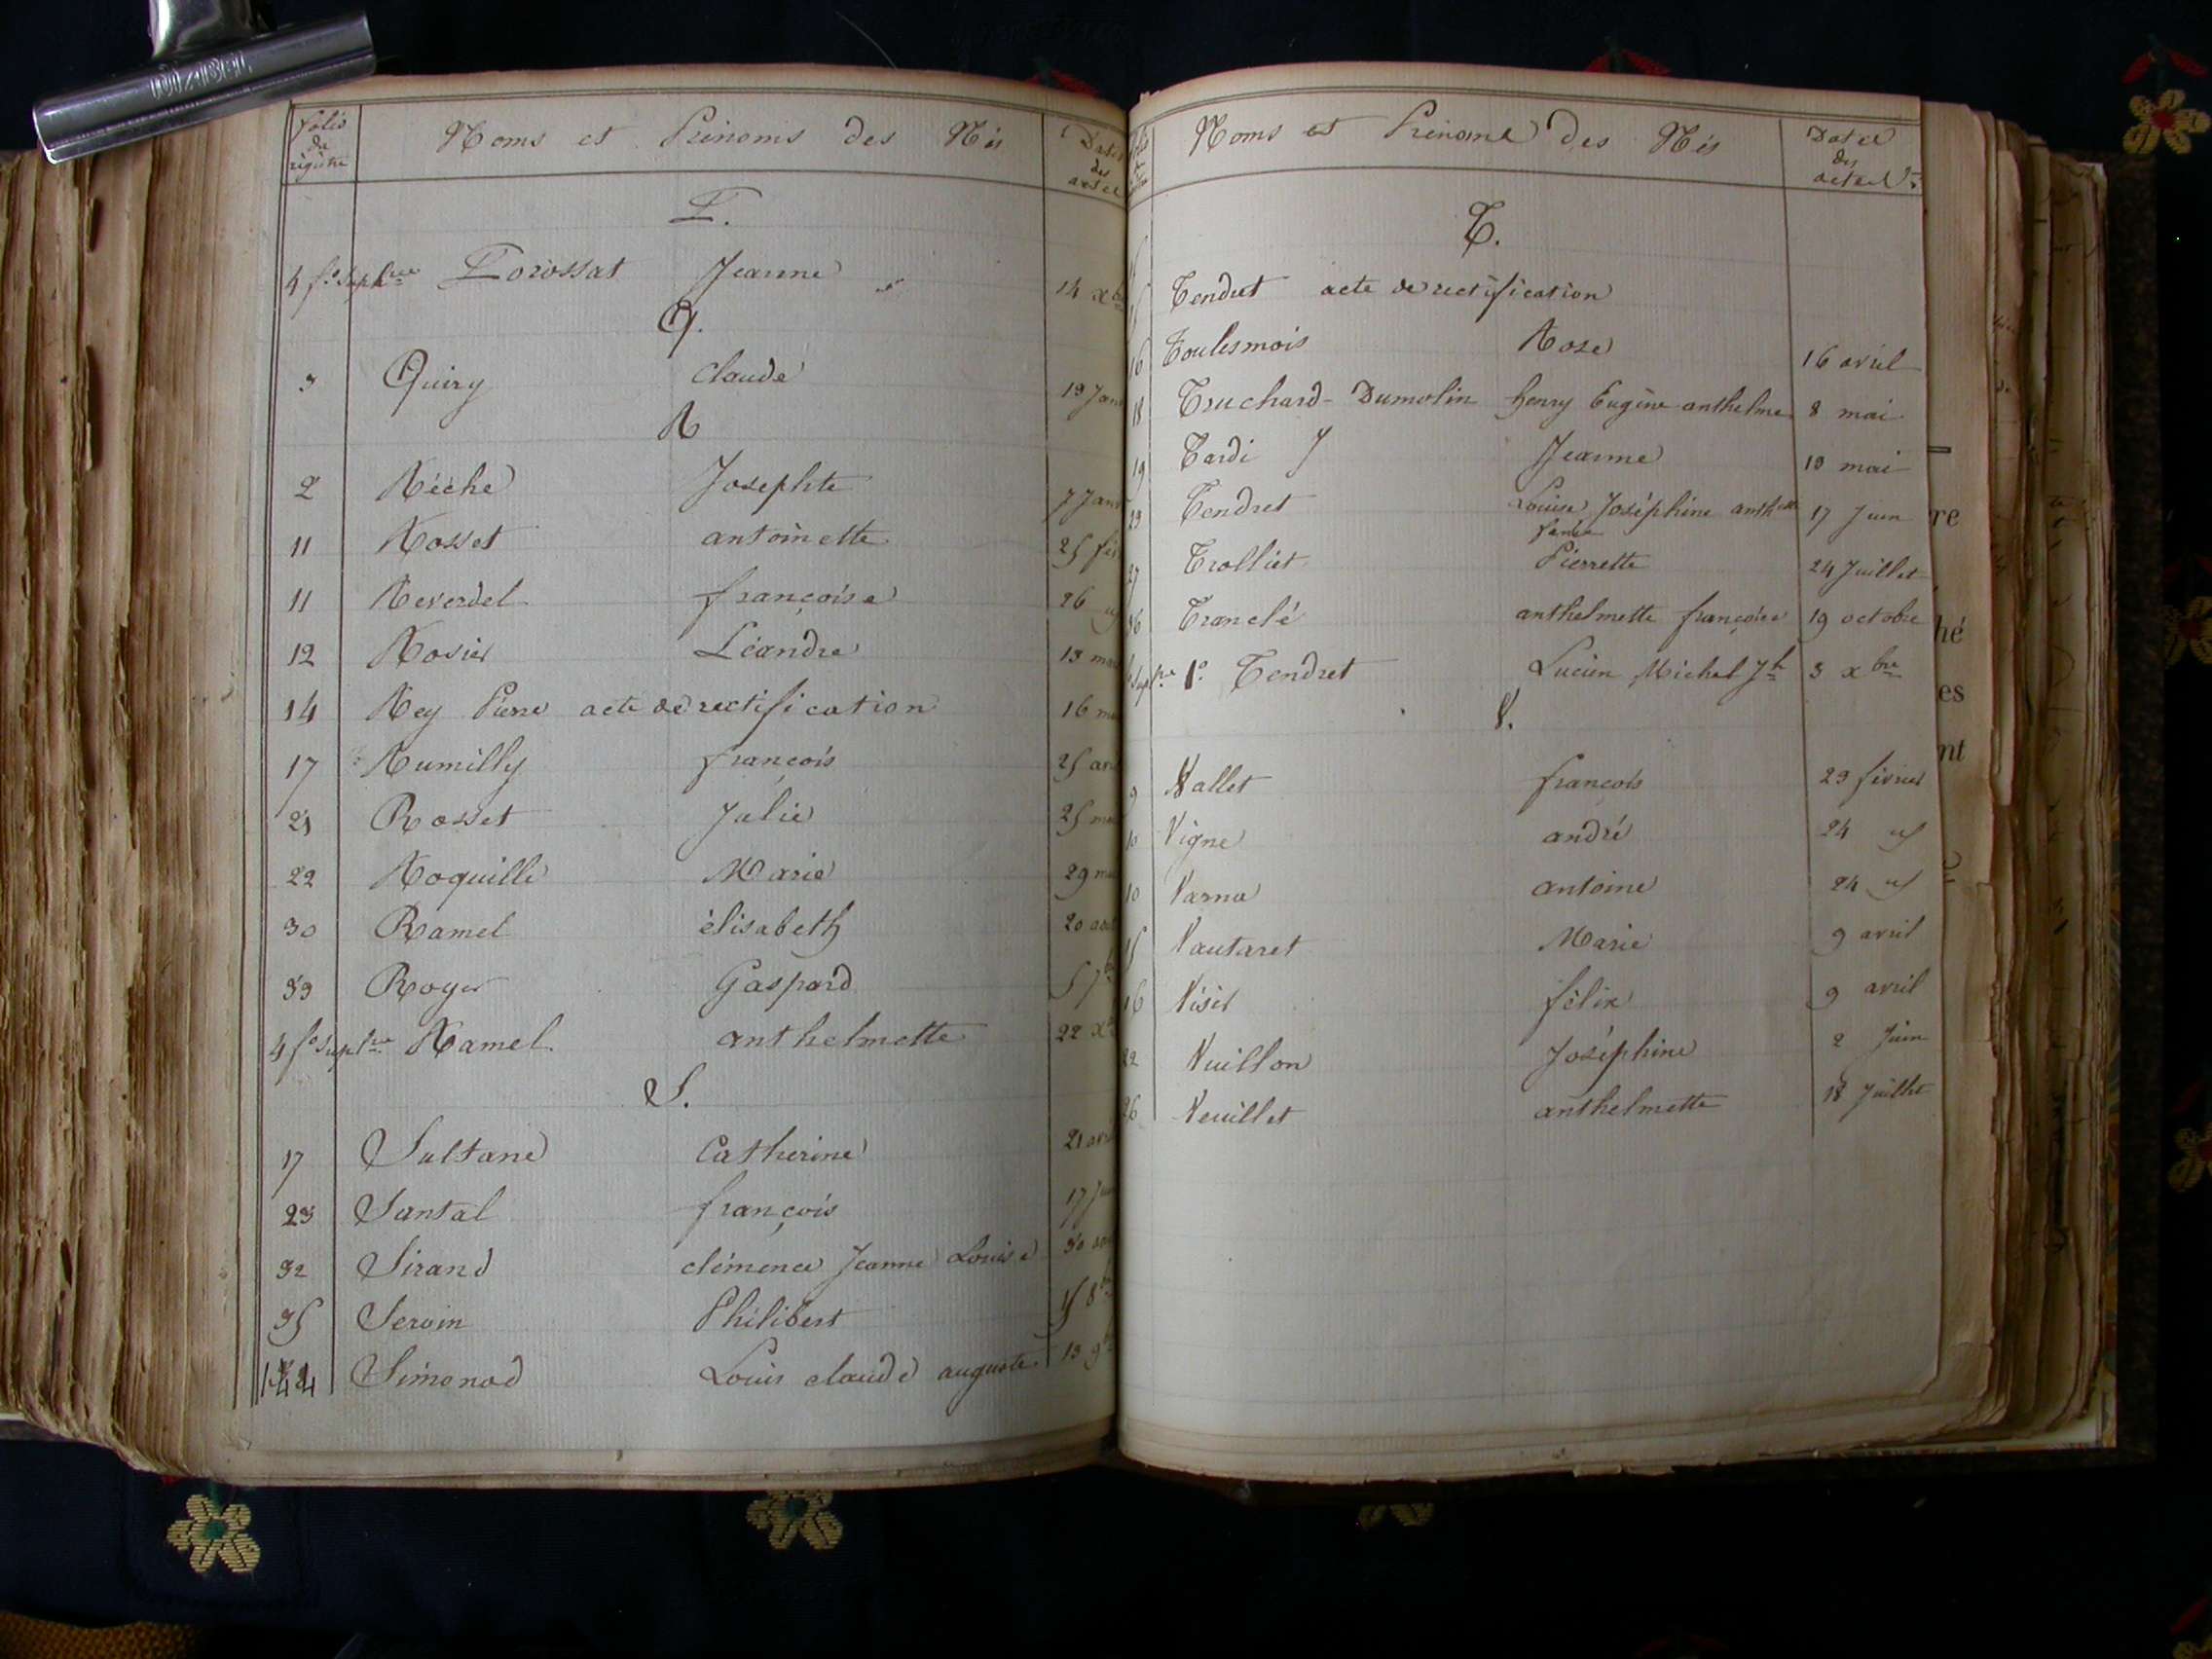 folio
du
régistre
Noms et Prénoms des Nés
Dates
des
actes
P.
4 f.º Suplre Porossat Jeanne 14 xbre
Q.
3 Quiry Claude 19 Janv
R
2 Rèche Josephte 7 Janv
11 Rosset antoinette 25 fév
11 Reverdel françoise 26
12 Rosier Léandre 13 mar
14 Rey Pierre acte de rectification 16 ma
17 Rumilly françois 25 avr
21 Rosset Julie 25 ma
22 Roquille Marie 29 ma
30 Ramel élisabeth 20 aout
33 Roger Gaspard 5 7b
4 f.º Suplre Ramel anthelmette 22 xb
S.
17 Sultane Catherine 21 avri
23 Santal françois 17 Ju
32 Sirand clémence Jeanne Louise 30 aou
35 Servin Philibert 15 8b
Simonod Louis claude auguste 13 9b
Noms et Prénoms des Nés
Dates
des
actes
T.
Tendret acte de rectification
16 Toulesmois Rose 16 avril
18 Truchard-Dumolin henry Eugène anthelme 8 mai
19 Tardi Jeanne 10 mai
23 Tendret Louise Joséphine 17 Juin
27 Trolliet Pierrette 24 Juillet
36 Tranclé anthelmette françoise 19 octobre
Suplre 1º Tendret Lucien Michel Jh 3 xbre
V.
9 Vallet françois 23 février
10 Vigne andré 24
10 Varna antoine 24
15 Vautaret Marie 9 avril
16 Visit félix 9 avril
22 Vuillon Joséphine 2 Juin
26 Veuillet anthelmette 18 Juillet
re
hé
es
nt